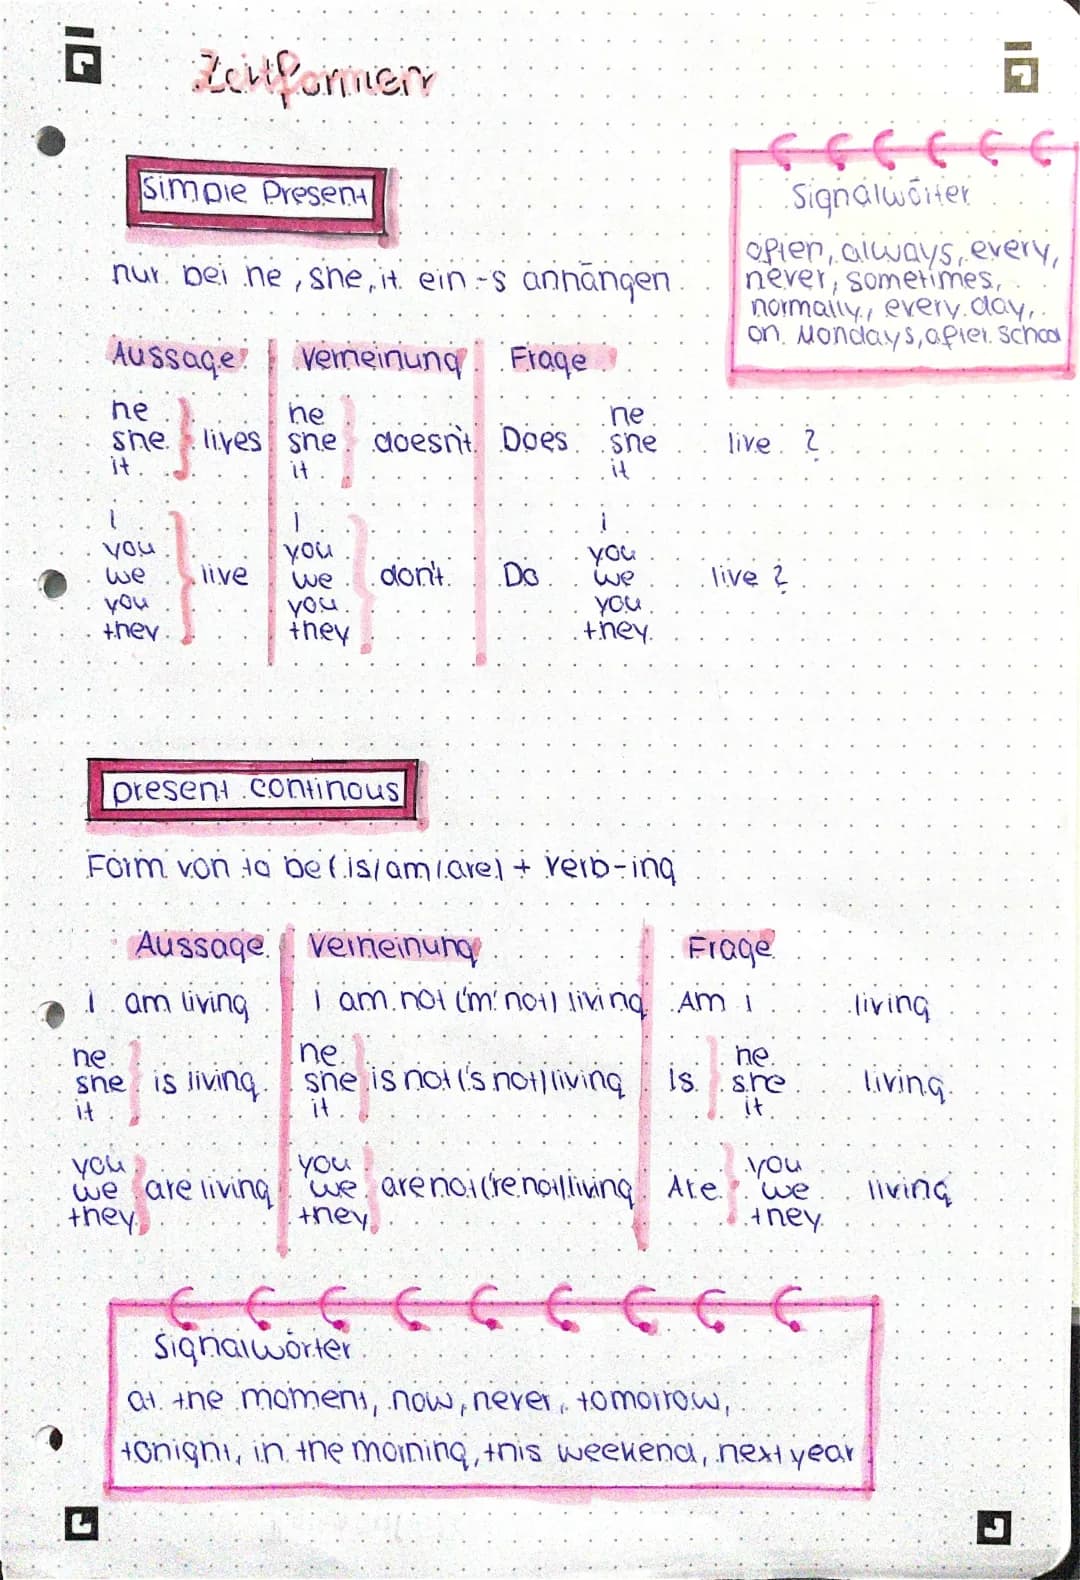 Zeitformen
Simple Present
nur bei he, she, it ein -s anhängen
Signalwörter
often, always, every,
never, sometimes,
normally, every day,
on Mondays, after school
Aussage Verneinung Frage
he he he
she lives she doesn't Does she live ?
it it it
I I i
you you you
we live we don't Do we live ?
you you you
they they they
present continous
Form von to be (is/am/are) + verb-ing
Aussage Verneinung Frage
I am living I am not ('m not) living Am I living
he he he
she is living she is not ('s not) living is she living
it it it
you you you
we are living we are not ('re not) living Are we living
they they they
Signalwörter
at the moment, now, never, tomorrow,
tonight, in the morning, this weekend, next year